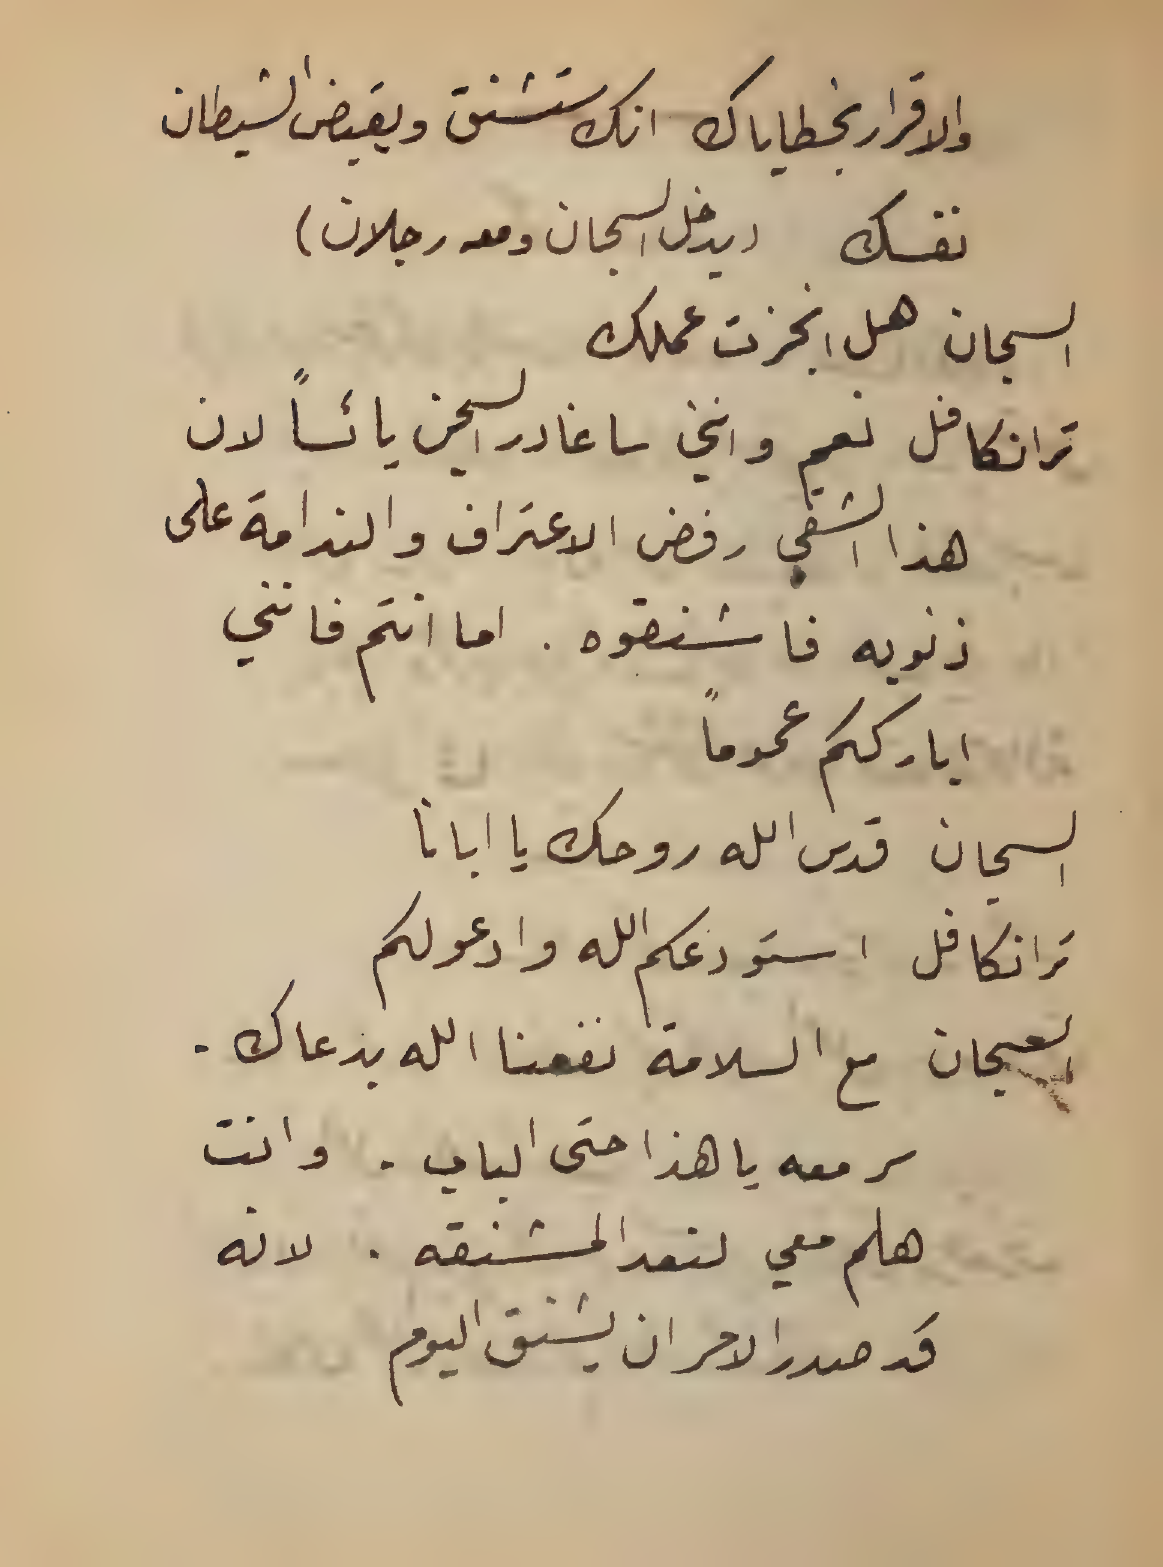 والاقرار بخطاياك انك ستشنق ويقبض الشيطان
نفسك (يدخل السجان ومعه رجلان)
السجان هل انجزت عملك
ترانكافل نعم وانني ساغادر السجن يائساً لان
هذا الشقي رفض الاعتراف والندامة على
ذنوبه فاشنقوه . اما انتم فانني
ابارككم عموماً
السجان قدس الله روحك يا ابانا
ترانكافل استودعكم الله وادعولكم
السجان مع السلامة نفعنا الله بدعاك .
سر معه يا هذا حتى الباب . وانت
هلم معي لنعد المشنقه . لانه
قد صدر الامر ان يشنق اليوم